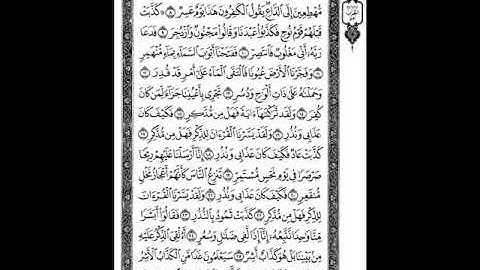 مُّهْطِعِينَ إِلَى ٱلدَّاعِ يَقُولُ ٱلْكَٰفِرُونَ هَٰذَا يَوْمٌ عَسِرٌ ٨ كَذَّبَتْ
قَبْلَهُمْ قَوْمُ نُوحٍ فَكَذَّبُوا۟ عَبْدَنَا وَقَالُوا۟ مَجْنُونٌ وَٱزْدُجِرَ ٩ فَدَعَا
رَبَّهُۥٓ أَنِّى مَغْلُوبٌ فَٱنتَصِرْ ١٠ فَفَتَحْنَآ أَبْوَٰبَ ٱلسَّمَآءِ بِمَآءٍ مُّنْهَمِرٍ
١١ وَفَجَّرْنَا ٱلْأَرْضَ عُيُونًا فَٱلْتَقَى ٱلْمَآءُ عَلَىٰٓ أَمْرٍ قَدْ قُدِرَ ١٢
وَحَمَلْنَٰهُ عَلَىٰ ذَاتِ أَلْوَٰحٍ وَدُسُرٍ ١٣ تَجْرِى بِأَعْيُنِنَا جَزَآءً لِّمَن كَانَ
كُفِرَ ١٤ وَلَقَد تَّرَكْنَٰهَآ ءَايَةً فَهَلْ مِن مُّدَّكِرٍ ١٥ فَكَيْفَ كَانَ
عَذَابِى وَنُذُرِ ١٦ وَلَقَدْ يَسَّرْنَا ٱلْقُرْءَانَ لِلذِّكْرِ فَهَلْ مِن مُّدَّكِرٍ ١٧
كَذَّبَتْ عَادٌ فَكَيْفَ كَانَ عَذَابِى وَنُذُرِ ١٨ إِنَّآ أَرْسَلْنَا عَلَيْهِمْ رِيحًا
صَرْصَرًا فِى يَوْمِ نَحْسٍ مُّسْتَمِرٍّ ١٩ تَنزِعُ ٱلنَّاسَ كَأَنَّهُمْ أَعْجَازُ نَخْلٍ
مُّنقَعِرٍ ٢٠ فَكَيْفَ كَانَ عَذَابِى وَنُذُرِ ٢١ وَلَقَدْ يَسَّرْنَا ٱلْقُرْءَانَ
لِلذِّكْرِ فَهَلْ مِن مُّدَّكِرٍ ٢٢ كَذَّبَتْ ثَمُودُ بِٱلنُّذُرِ ٢٣ فَقَالُوٓا۟ أَبَشَرًا
مِّنَّا وَٰحِدًا نَّتَّبِعُهُۥٓ إِنَّآ إِذًا لَّفِى ضَلَٰلٍ وَسُعُرٍ ٢٤ أَءُلْقِىَ ٱلذِّكْرُ عَلَيْهِ
مِنۢ بَيْنِنَا بَلْ هُوَ كَذَّابٌ أَشِرٌ ٢٥ سَيَعْلَمُونَ غَدًا مَّنِ ٱلْكَذَّابُ ٱلْأَشِرُ